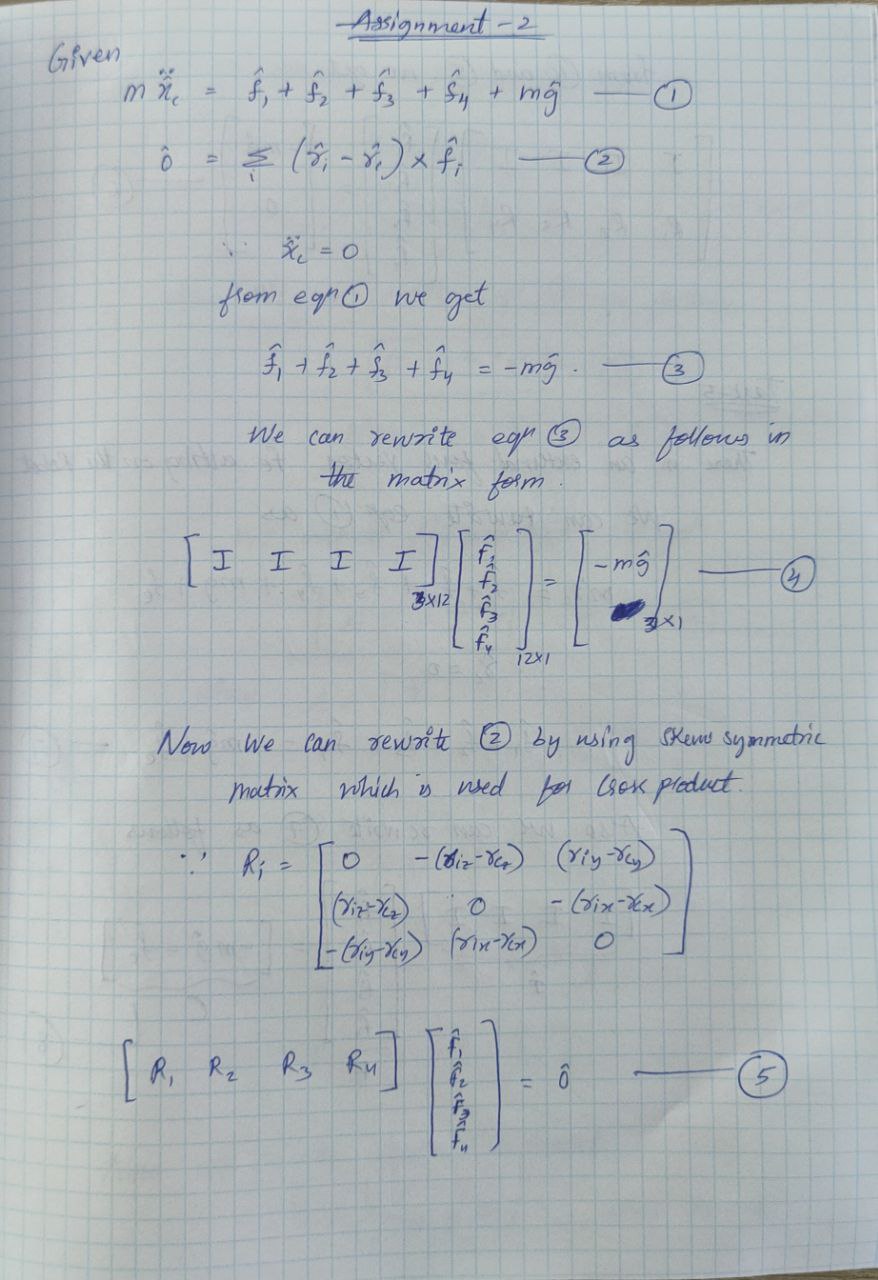 Assignment - 2
Given
m ẍ̂c = f̂1 + f̂2 + f̂3 + f̂4 + mĝ —— ①
ô = Σi (r̂i - r̂c) × f̂i —— ②
∵ ẍc = 0
from eqn ① we get
f̂1 + f̂2 + f̂3 + f̂4 = -mĝ. —— ③
We can rewrite eqn ③ as follows in
the matrix form.
[ I I I I ]3×12 [ f̂1 f̂2 f̂3 f̂4 ]12×1 = [ -mĝ ]3×1 —— ④
Now we can rewrite ② by using skew symmetric
matrix which is used for cross product.
∵ Ri = [ 0 -(riz-rcz) (riy-rcy)
(riz-rcz) 0 -(rix-rcx)
-(riy-rcy) (rix-rcx) 0 ]
[ R1 R2 R3 R4 ] [ f̂1 f̂2 f̂3 f̂4 ] = ô —— ⑤